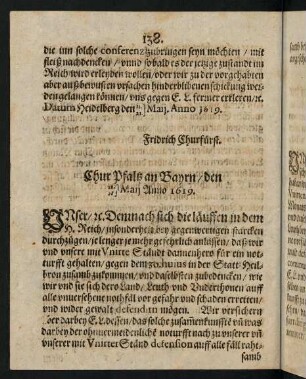 138.
die inn solche conferentz zubringen seyn möchten / mit
fleiß nachdencken / vnnd sobald es der jetzige zustandt im
Reich wird erleyden wollen / oder wir zu der vorgehabten
aber auß bewusten vrsachen hinderblibenen schickung wer-
den gelangen können / vns gegen E. L. ferner erkleren / ꝛc.
Datum Heidelberg den Maij, Anno 1619.
Fridrich Churfürst.
Chur Pfaltz an Bayrn / den
Maij Anno 1619.
UNser / ꝛc. Demnach sich die läufften in dem
H. Reich / insonderheit bey gegenwertigen starcken
durchzügen / je lenger je mehr gefehrlich anlassen / daß wir
und unsere mit Vnirte Ständt dannenhero für ein not-
turfft geachtet / gegen dem in der Statt Heil-
bronn zusamb zukommen / vnd daselbsten zubedencken / wie
wir vnd sie sich dero Land / Leuth vnd Vnderthonen auff
alle vnuersehene nothfäll vor gefahr vnd schaden erretten /
vnd wider gewalt defendirn mögen. Wir versichern
aber darbey E. L. dessen / das solche zusamenkunffte vñ was
darbey der ohnuermeidenliche notturfft nach zu vnserer vñ
vnserer mit Vnirter Ständ defension auff alle fäll raht-
samb